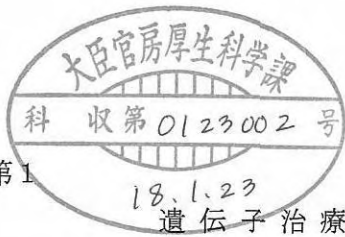 大臣官房厚生科学課
科 収第 0123002 号
第1
18.1.23
遺伝子治療